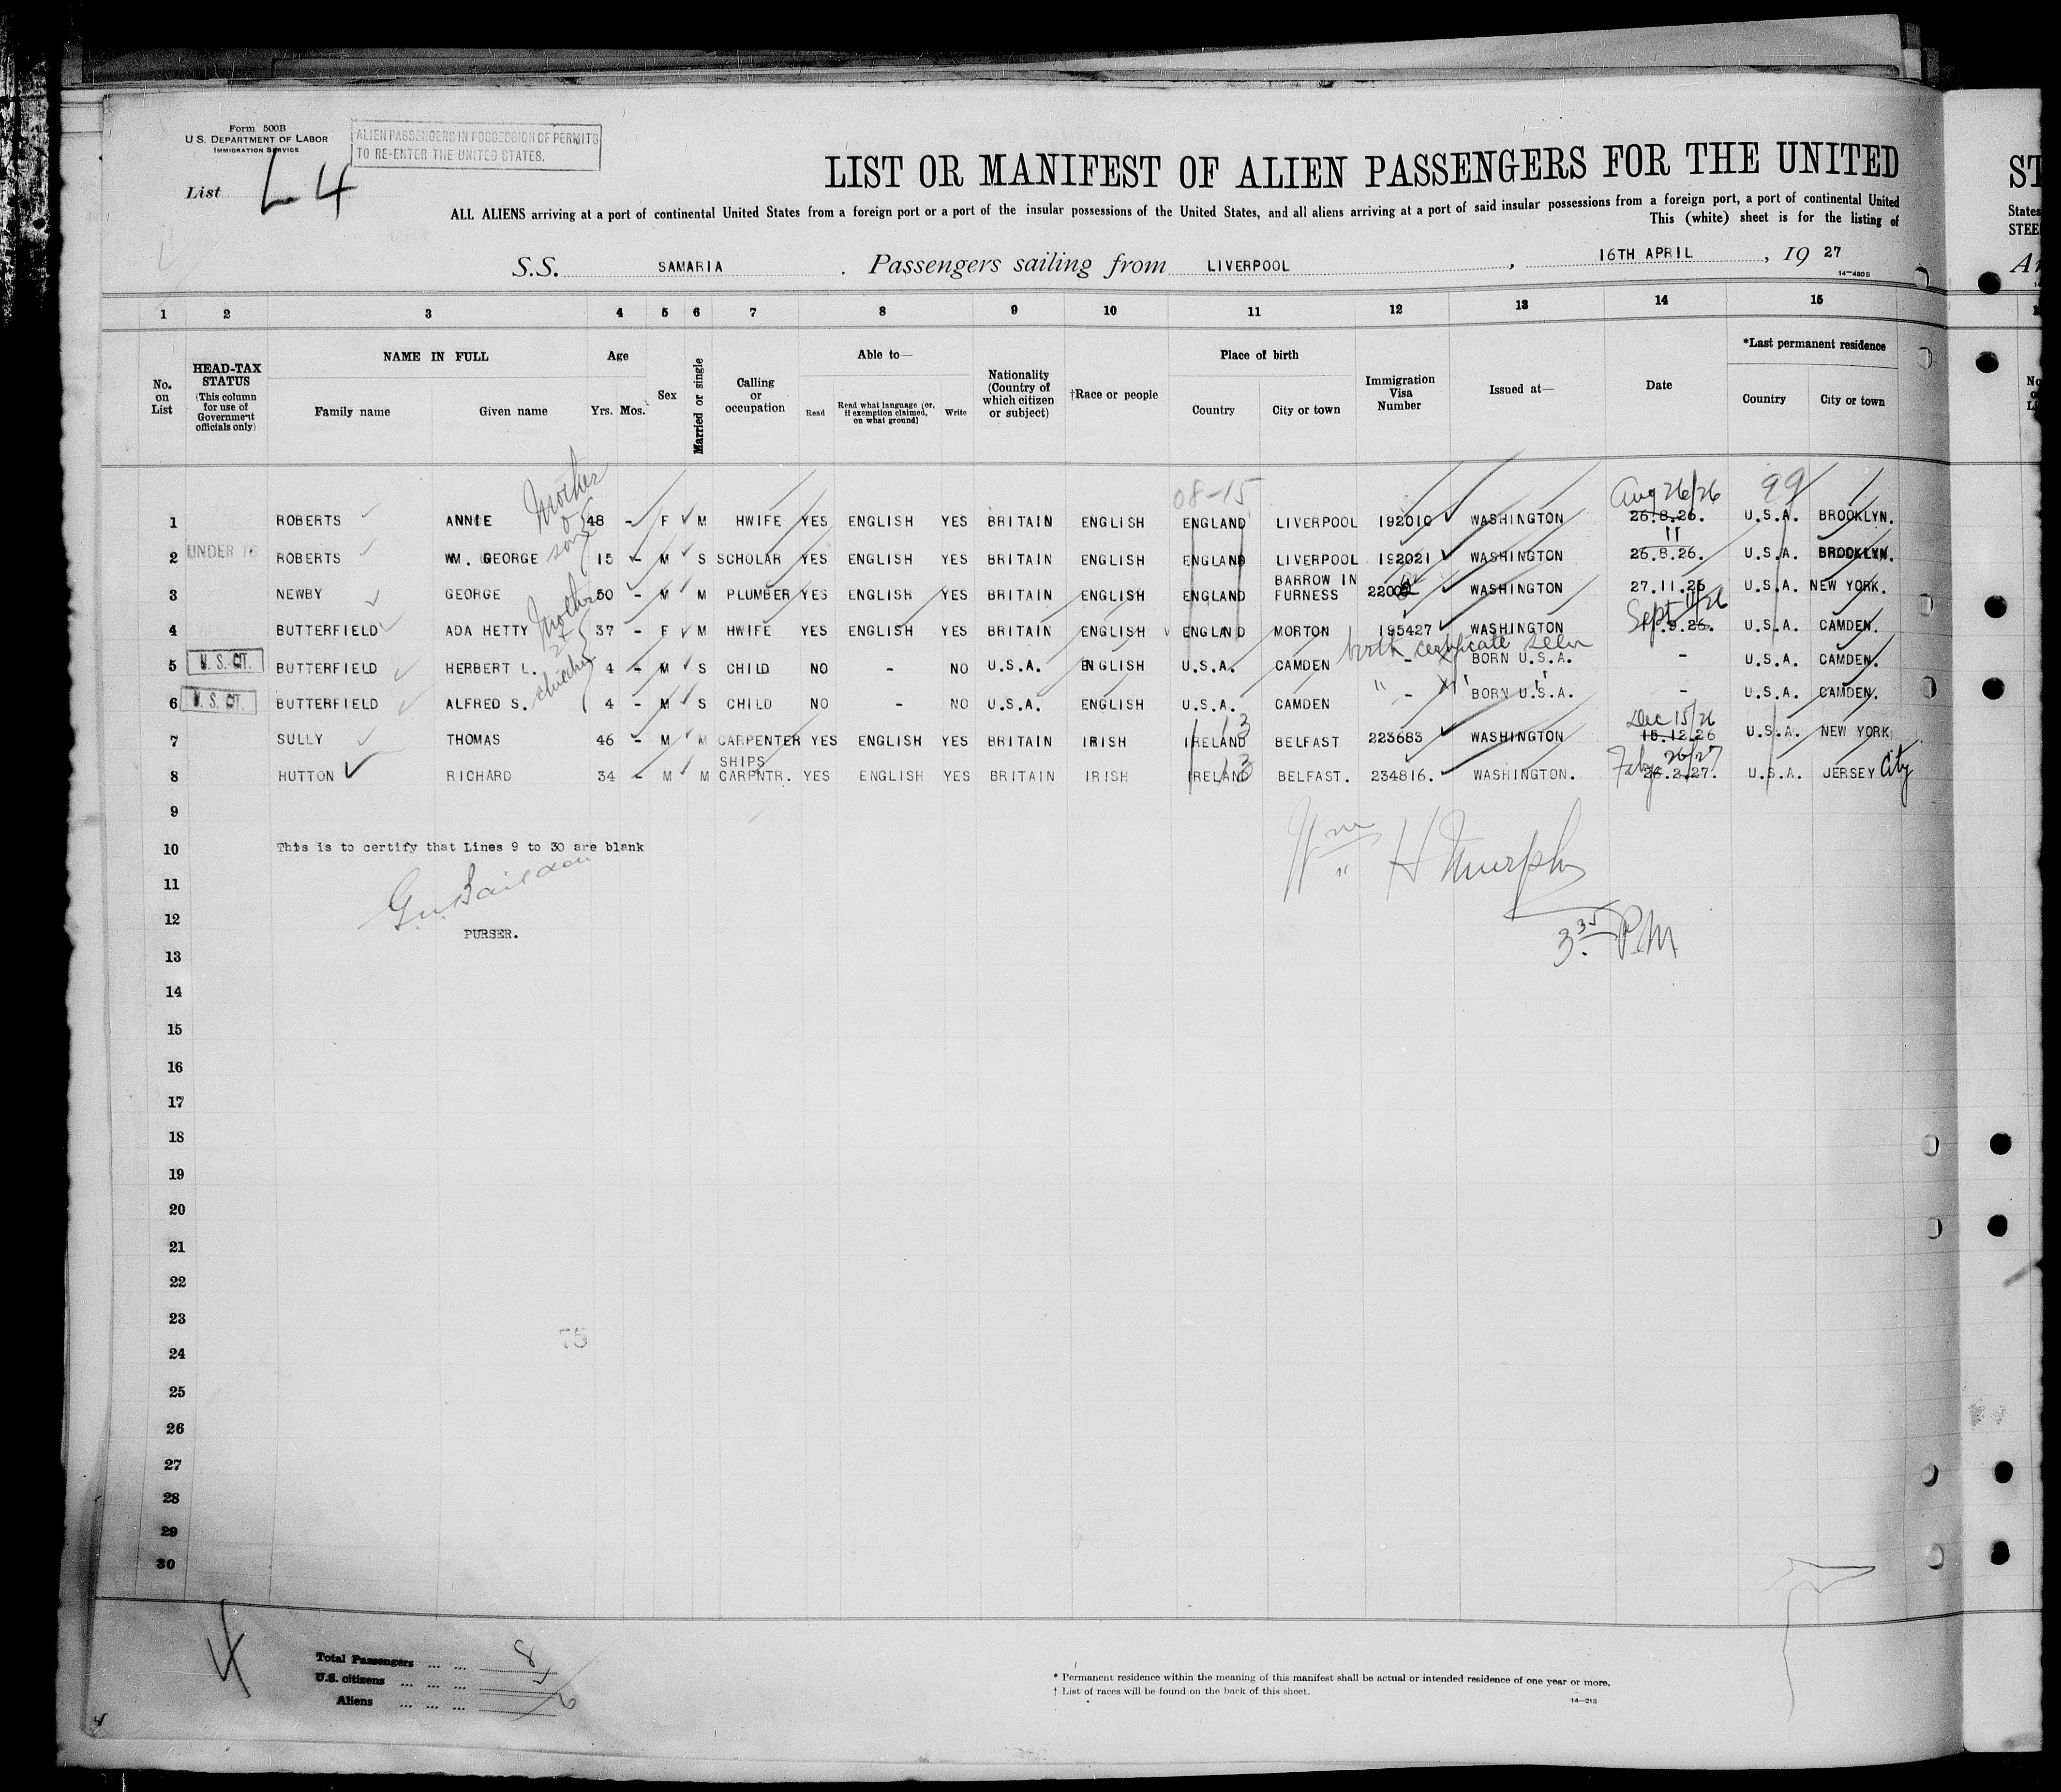 Form 500B
U. S. DEPARTMENT OF LABOR
IMMIGRATION SERVICE
ALIEN PASSENGERS IN POSSESSION OF PERMITS
TO RE-ENTER THE UNITED STATES.
List L 4
LIST OR MANIFEST OF ALIEN PASSENGERS FOR THE UNITED
ALL ALIENS arriving at a port of continental United States from a foreign port or a port of the insular possessions of the United States, and all aliens arriving at a port of said insular possessions from a foreign port, a port of continental United
This (white) sheet is for the listing of
S.S. SAMARIA . Passengers sailing from LIVERPOOL , 16TH APRIL , 19 27
14-430 B
1 2 3 4 5 6 7 8 9 10 11 12 13 14 15
No. on List
HEAD-TAX STATUS (This column for use of Government officials only)
NAME IN FULL
Family name Given name
Age
Yrs. Mos.
Sex
Married or single
Calling or occupation
Able to—
Read Read what language (or, if exemption claimed, on what ground) Write
Nationality (Country of which citizen or subject)
†Race or people
Place of birth
Country City or town
Immigration Visa Number
Issued at—
Date
*Last permanent residence
Country City or town
Mother & son
08-15 Aug 26/26 99
1 ROBERTS ANNIE 48 - F M HWIFE YES ENGLISH YES BRITAIN ENGLISH ENGLAND LIVERPOOL 192010 WASHINGTON 26.8.26. U.S.A. BROOKLYN.
2 UNDER 16 ROBERTS WM. GEORGE 15 - M S SCHOLAR YES ENGLISH YES BRITAIN ENGLISH ENGLAND LIVERPOOL 192021 WASHINGTON " 26.8.26. U.S.A. BROOKLYN.
3 NEWBY GEORGE 50 - M M PLUMBER YES ENGLISH YES BRITAIN ENGLISH ENGLAND BARROW IN FURNESS WASHINGTON 27.11.26 U.S.A. NEW YORK.
Mother & children
Sept 11/26
4 BUTTERFIELD ADA HETTY 37 - F M HWIFE YES ENGLISH YES BRITAIN ENGLISH ENGLAND MORTON 195427 WASHINGTON .9.26. U.S.A. CAMDEN.
birth certificate seen
5 U. S. CIT. BUTTERFIELD HERBERT L. 4 - M S CHILD NO - NO U.S.A. ENGLISH U.S.A. CAMDEN - BORN U.S.A. - U.S.A. CAMDEN.
6 U. S. CIT. BUTTERFIELD ALFRED S. 4 - M S CHILD NO - NO U.S.A. ENGLISH U.S.A. CAMDEN " - " BORN U.S.A. - U.S.A. CAMDEN.
13 Dec 15/26
7 SULLY THOMAS 46 - M M CARPENTER YES ENGLISH YES BRITAIN IRISH IRELAND BELFAST 223683 WASHINGTON 15.12.26 U.S.A. NEW YORK
13 Feby 26/27
8 HUTTON RICHARD 34 - M M SHIPS CARPNTR. YES ENGLISH YES BRITAIN IRISH IRELAND BELFAST. 234816. WASHINGTON. 26.2.27. U.S.A. JERSEY City
9
10 This is to certify that Lines 9 to 30 are blank
Wm H Murphy
11
12
PURSER.
3 35 P.M
13
14
15
16
17
18
19
20
21
22
23
75
24
25
26
27
28
29
30
4
Total Passengers ... ... 8
U.S. citizens ... ... ...
Aliens ... ... ... 6
* Permanent residence within the meaning of this manifest shall be actual or intended residence of one year or more.
† List of races will be found on the back of this sheet.
14-213